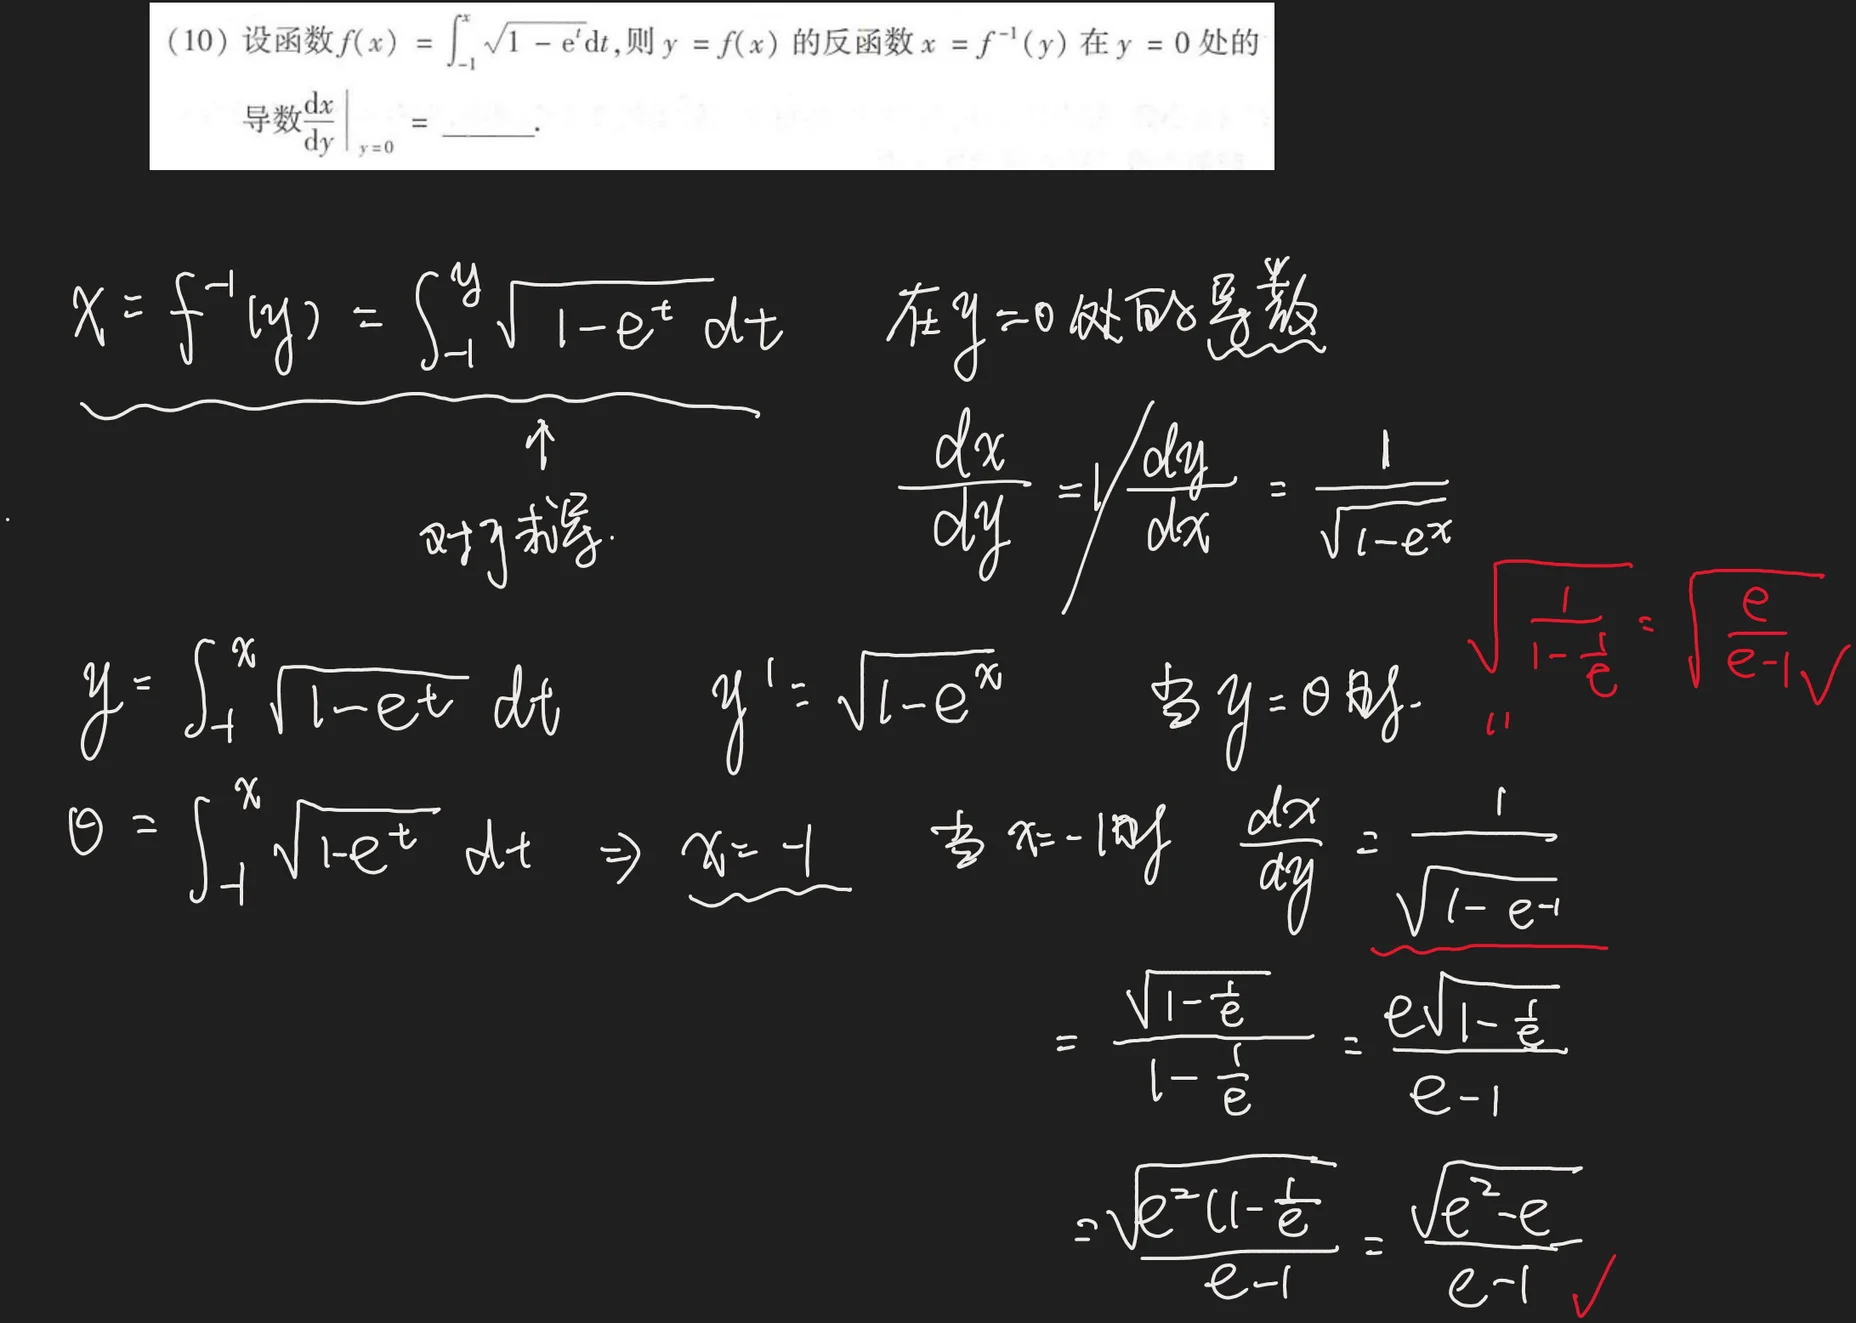 (10) 设函数 f(x) = ∫_{-1}^{x} √(1 - e^t) dt,则 y = f(x) 的反函数 x = f⁻¹(y) 在 y = 0 处的
导数 dx/dy |_{y=0} = ______.
x = f⁻¹(y) = ∫_{-1}^{y} √(1-e^t) dt 在 y=0 处的导数
↑
对y求导.
dx/dy = 1/(dy/dx) = 1/√(1-e^x)
√(1/(1-1/e)) = √(e/(e-1)) ✓
y = ∫_{-1}^{x} √(1-e^t) dt y' = √(1-e^x) 当 y=0时. 〃
0 = ∫_{-1}^{x} √(1-e^t) dt ⇒ x=-1 当 x=-1时 dx/dy = 1/√(1-e^{-1})
= √(1-1/e)/(1-1/e) = e√(1-1/e)/(e-1)
= √(e²(1-1/e))/(e-1) = √(e²-e)/(e-1) ✓